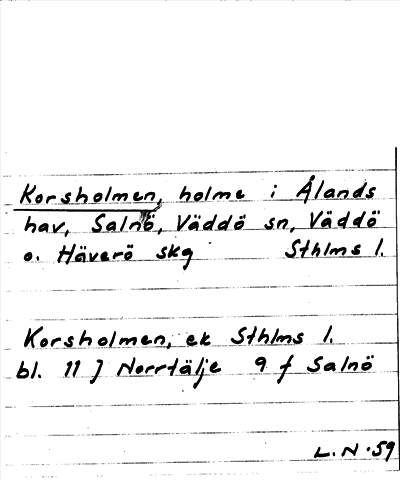 Korsholmen, holme i Ålands
hav, Salnö, Väddö sn, Väddö
o. Häverö skg Sthlms l.
Korsholmen, ek Sthlms l.
bl. 11 J Norrtälje 9 f Salnö
L.N.59